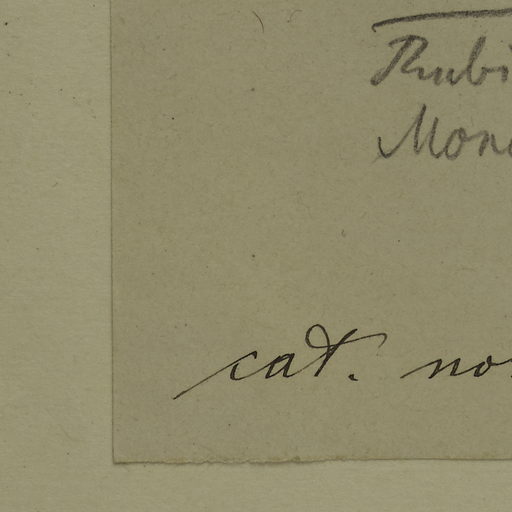 Rubi
Mon
cat. no